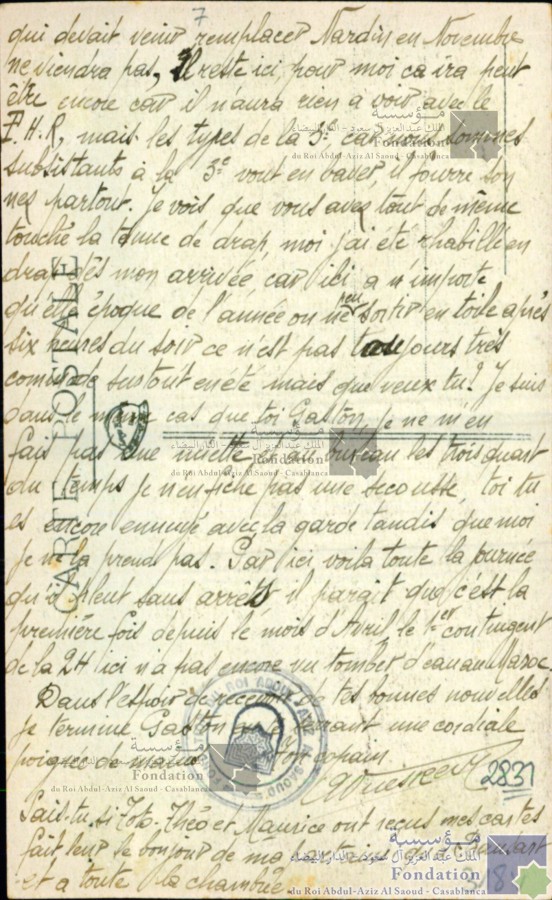 7
qui devait venir remplacer Nardin en Novembre
ne viendra pas, il reste ici, pour moi ca ira peut
être encore car il n'aura rien a voir avec le
P.H.R, mais les types de la 3e car nous sommes
subsistants à la 3e vont en baver, il fourre son
nez partout. Je vois que vous avez tout de même
touché la tenue de drap, moi j'ai été rhabillé en
drap dès mon arrivée car ici a n'importe
quelle époque de l'année on ne peu sortir en toile après
six heures du soir ce n'est pas toujours très
commode surtout en été mais que veux tu? Je suis
dans le même cas que toi Gaston, je ne m'en
fais pas une miette le bureau les trois quart
du temps je n'en fiche pas une secousse, toi tu
es encore ennuyé avec la garde tandis que moi
je ne la prend pas. Par ici voila toute la journée
qu'il pleut sans arrêts, il parait que c'est la
première fois depuis le mois d'Avril, le 1er contingent
de la 24 ici n'a pas encore vu tomber d'eau au Maroc.
Dans l'espoir de recevoir de tes bonnes nouvelles
je termine Gaston en te serrant une cordiale
poignée de mains. Ton copain
2831
Sais-tu si Toto, Théo et Maurice ont reçus mes cartes
fait leur le bonjour de ma part ainsi qu'a
et a toute la chambrée
CARTE POSTALE
مؤسسة
الملك عبد العزيز آل سعود - الدار البيضاء
Fondation
du Roi Abdul-Aziz Al Saoud - Casablanca